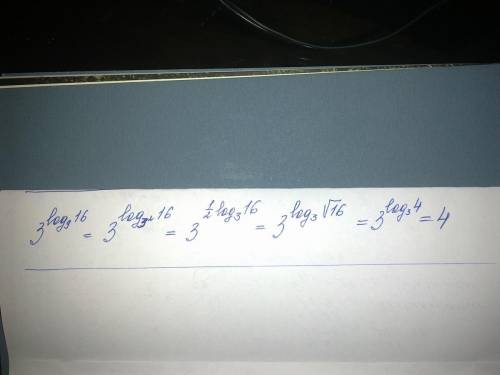 3^{log_9 16} = 3^{log_{3^2} 16} = 3^{\frac{1}{2} log_3 16} = 3^{log_3 √16} = 3^{log_3 4} = 4